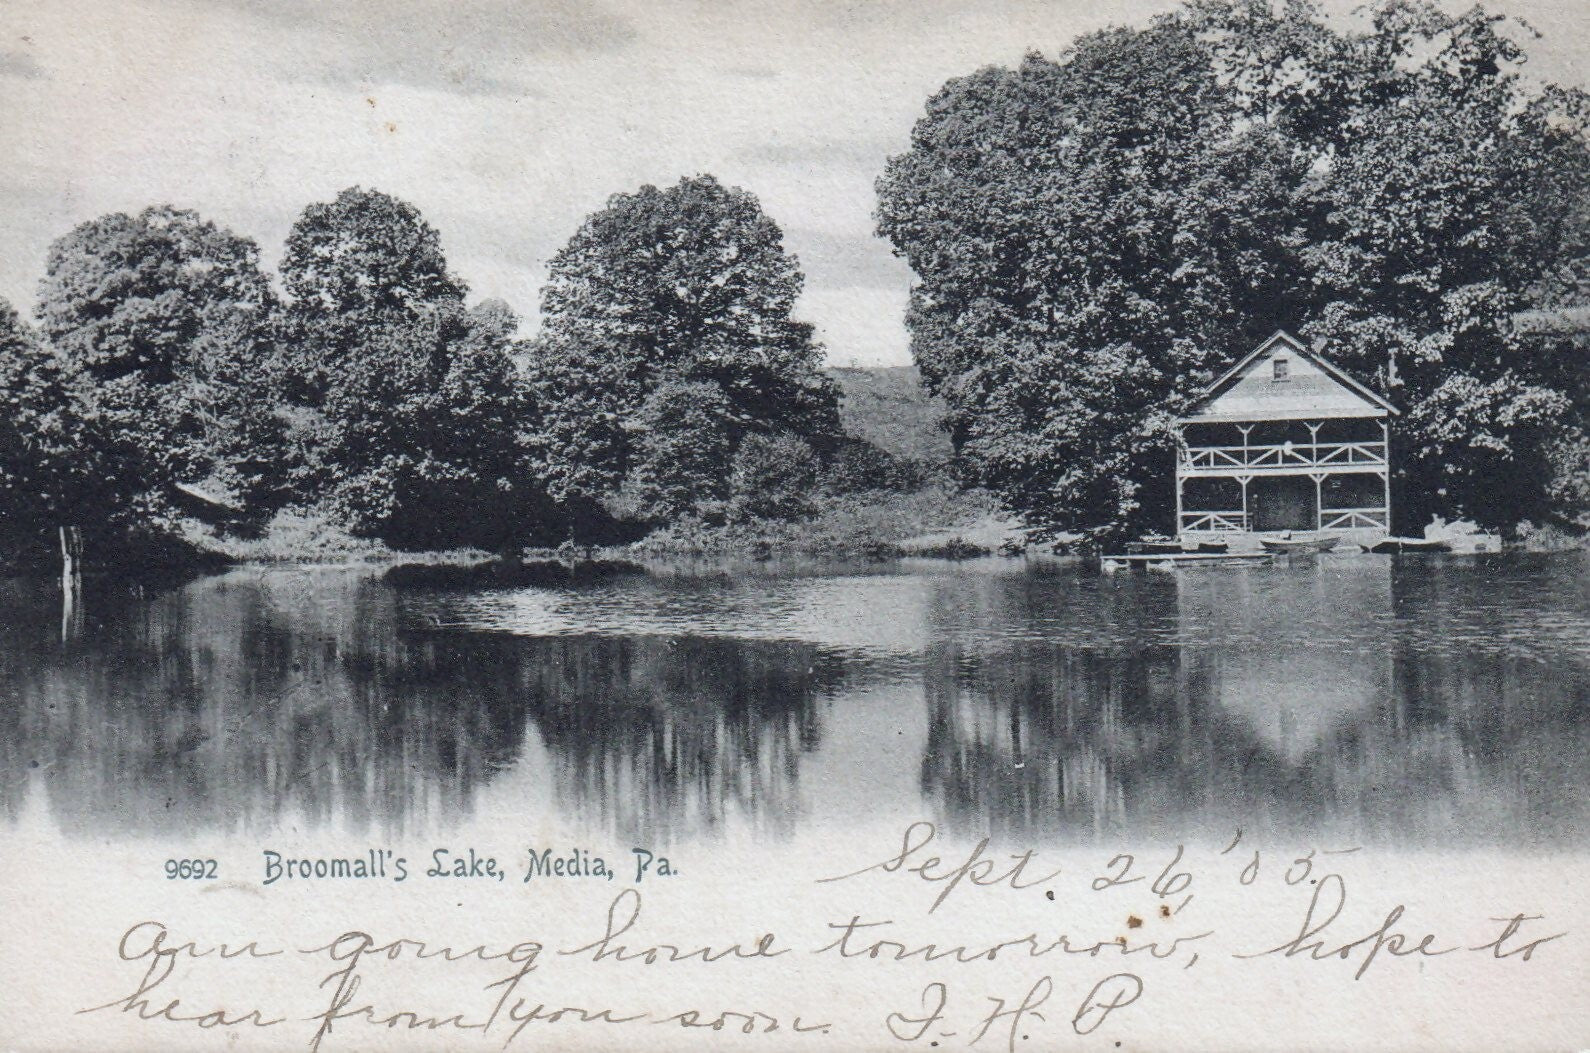 9692 Broomall's Lake, Media, Pa.
Sept. 26, '05.
Am going home tomorrow, hope to
hear from you soon. I. H. P.